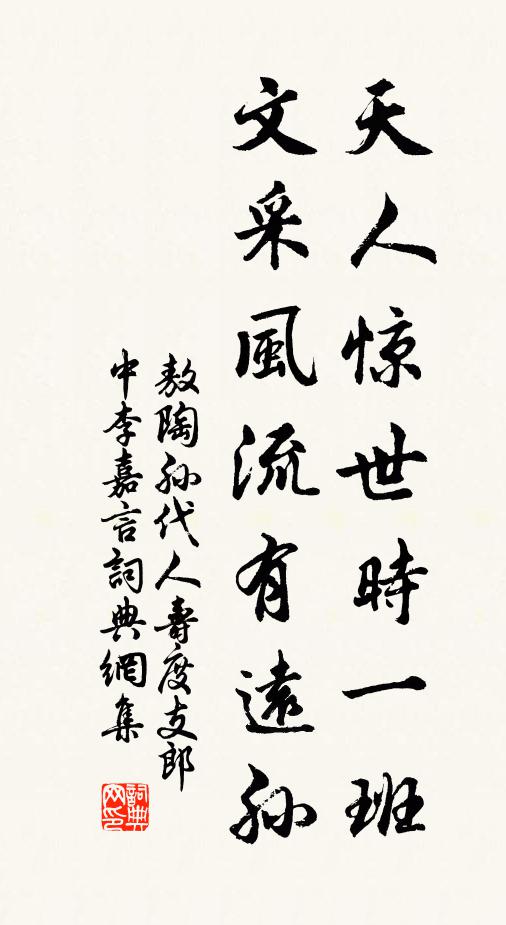 天人惊世時一班
文采風流有遠孙
敖陶孙代人壽度支郎
中李嘉言詞典網集
詞典网印